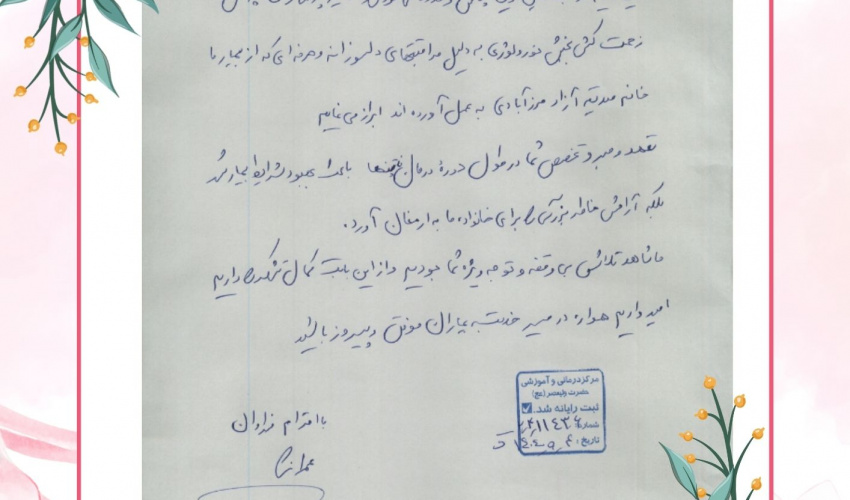 زحمت کش بخش نورولوژی به دلیل مراقبتهای دلسوزانه و حرفه ای که از بیمار ما
خانم صدیقه آزاد میرزآبادی به عمل آورده اند ابراز می نمایم
تعهد و صبر و تخصص شما در طول دوره درمان نه تنها باعث بهبود شرایط بیمار شد
بلکه آرامش خاطر بزرگی را برای خانواده ما به ارمغان آورد.
ما شاهد تلاش بی وقفه و توجه ویژه شما بودیم و از این بابت کمال تشکر را داریم
امیدواریم همواره در مسیر خدمت به بیماران موفق و پیروز باشید
با احترام فراوان
مرکز درمانی و آموزشی
حضرت ولیعصر (عج)
ثبت رایانه شد.
شماره:
تاریخ: